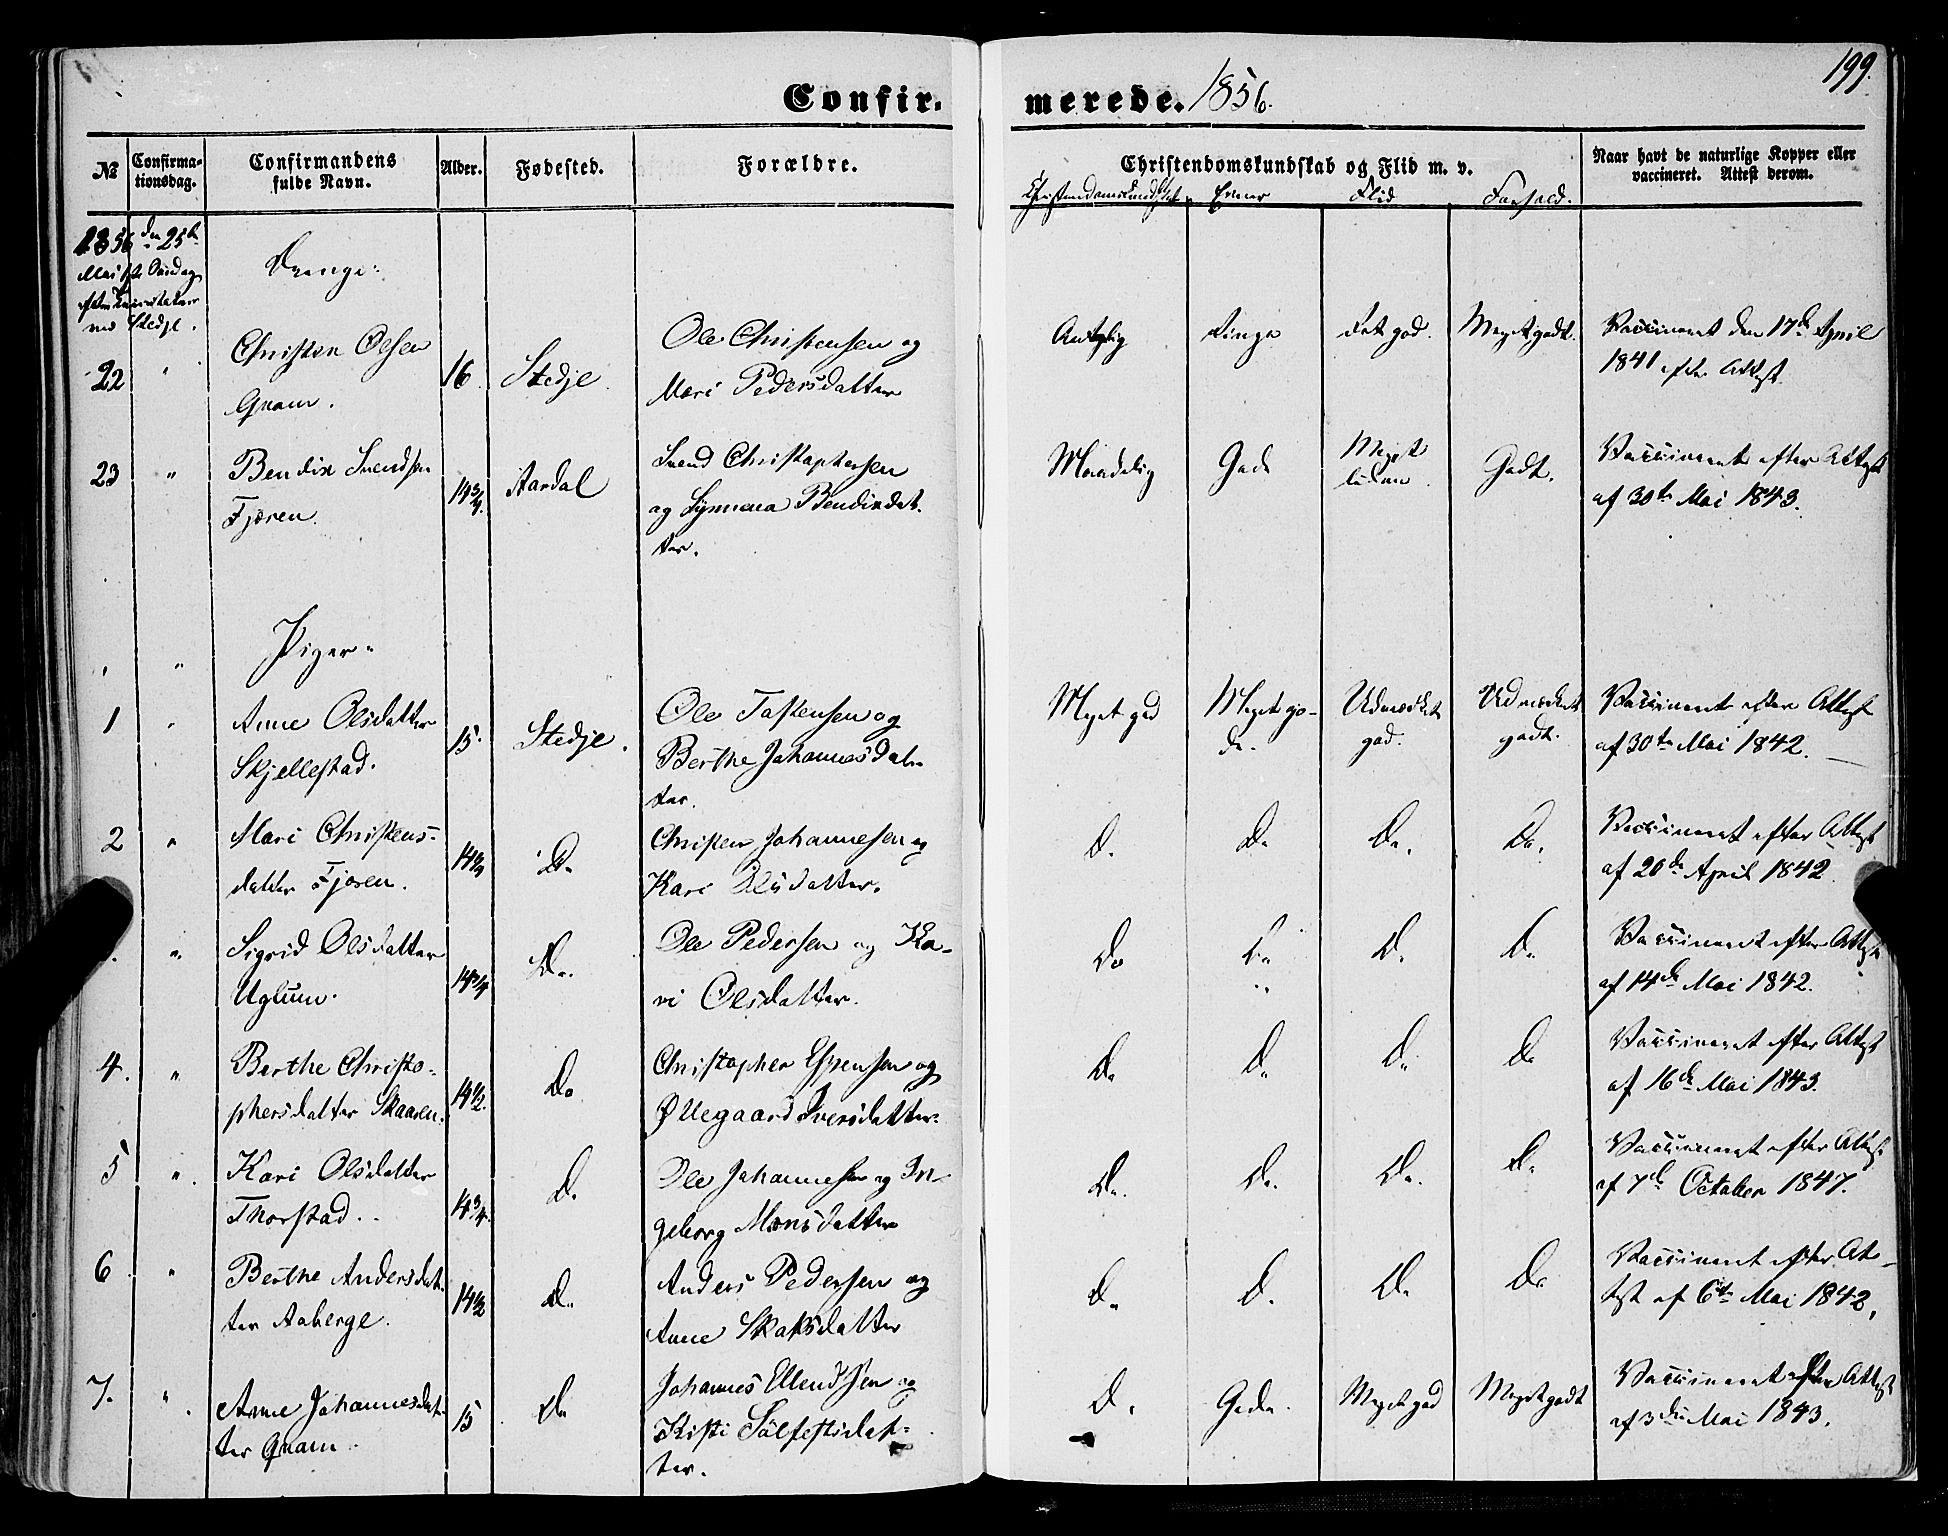 199.
Confir.
merede. 1856.
№
Confirma-
tionsdag.
Confirmandens
fulde Navn.
Alder.
Fødested.
Forældre.
Christendomskundskab og Flid m. v.
Naar havt de naturlige Kopper eller
vaccineret. Attest derom.
Evner
Flid
Forhold.
1856 den 25de
Mai
Søndag
ved Stedje.
Drenge:
22
"
Christen Olsen
Qvam.
16
Stedje.
Ole Christensen og
Mari Pedersdatter
Ringe
Ret god.
Meget godt.
Vaccineret den 17de April
1841 efter Attest.
23
"
Bendix Svendsen
Fjæren.
14 3/4.
Aardal
Svend Christophersen
og Synneva Bendixdat-
ter.
Maadelig
Gode
Meget
liden.
Godt.
Vaccineret efter Attest
af 30te Mai 1843.
"
Piger
1
"
Anne Olsdatter
Skjellestad.
15.
Stedje.
Ole Torstensen og
Berthe Johannesdat-
ter.
Meget god
Meget go-
de.
Udmærket
god.
Udmærket
godt.
Vaccineret efter Attest
af 30te Mai 1842.
2
"
Mari Christens-
datter Fjæren.
Do
Christen Johannesen og
Kari Olsdatter.
Do
Do
Do.
Do.
Vaccineret efter Attest
af 20de April 1842
"
Sigrid Olsdatter
Uglum.
14 3/4
Do.
Ole Pedersen og Ka-
ri Olsdatter.
Do
Do
Do
Do
Vaccineret efter Attest
af 14de Mai 1842.
4.
"
Berthe Christo-
phersdatter Skaaren.
14 1/2.
Do
Christopher Espensen og
Øllegaard Iversdatter.
Do
Do
Do
Do
Vaccineret efter Attest
af 16de Mai 1843.
5
"
Kari Olsdatter
Thorstad.
14 3/4.
Do
Ole Johannesen og In-
geborg Monsdatter
Do.
Do.
Do.
Do
Vaccineret efter Attest
af 7de October 1847.
6
"
Berthe Andersdat-
ter Aaberge.
14 1/2
Do
Anders Pedersen og
Anne Skaksdatter
Do
Do
Do
Do
Vaccineret efter At-
test af 6te Mai 1842.
7.
"
Anne Johannesdat-
ter Qvam.
15
Do
Johannes Ellendsen og
Kisti Sølfestsdat-
ter.
Do
Gode.
Meget god
Meget godt
Vaccineret efter Attest
af 3die Mai 1843.